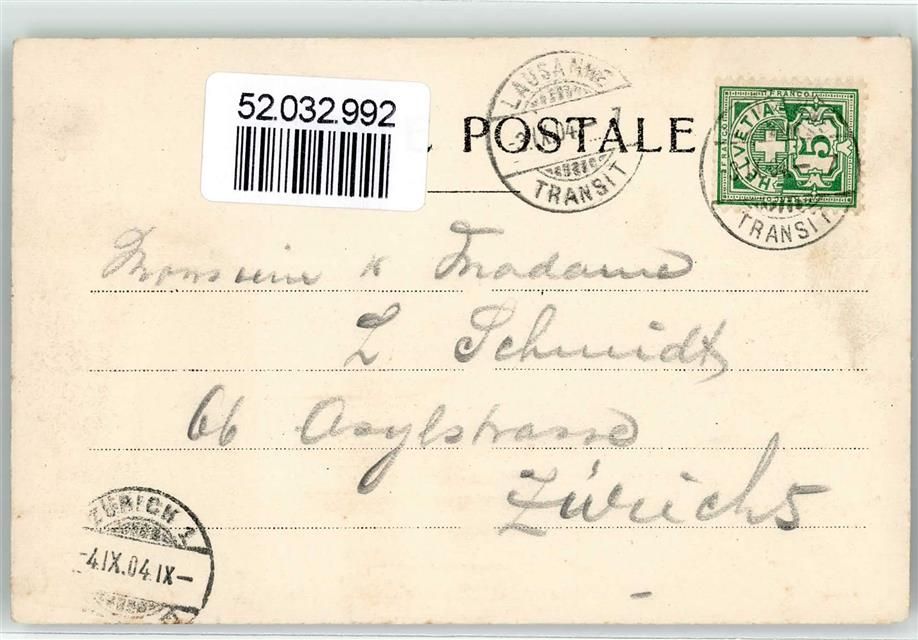 52.032.992
POSTALE
LAUSANNE
TRANSIT
FRANCO
HELVETIA
5
TRANSIT
Monsieur & Madame
L Schmidt
66 Asylstrasse
Zürich 5
ZÜRICH 1
-4.IX.04.IX-